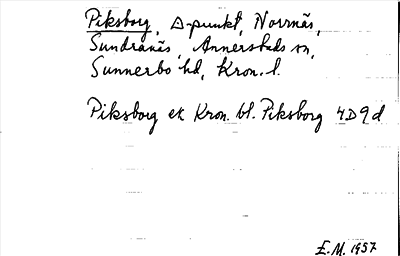 Piksborg, Δ-punkt, Norrnäs,
Sundranäs, Annerstads sn,
Sunnerbo hd, Kron. l.
Piksborg ek Kron. bl. Piksborg 4D9d
E.M. 1957